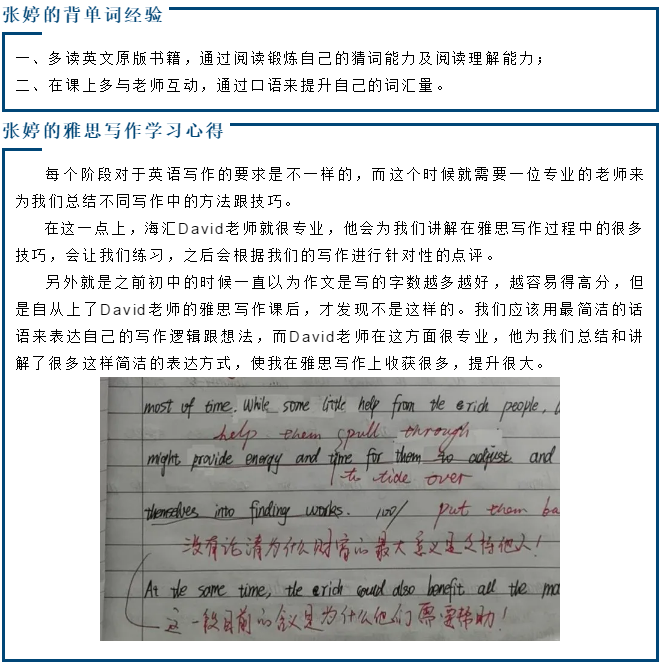 张婷的背单词经验
一、多读英文原版书籍，通过阅读锻炼自己的猜词能力及阅读理解能力；
二、在课上多与老师互动，通过口语来提升自己的词汇量。
张婷的雅思写作学习心得
每个阶段对于英语写作的要求是不一样的，而这个时候就需要一位专业的老师来
为我们总结不同写作中的方法跟技巧。
在这一点上，海汇David老师就很专业，他会为我们讲解在雅思写作过程中的很多
技巧，会让我们练习，之后会根据我们的写作进行针对性的点评。
另外就是之前初中的时候一直以为作文是写的字数越多越好，越容易得高分，但
是自从上了David老师的雅思写作课后，才发现不是这样的。我们应该用最简洁的话
语来表达自己的写作逻辑跟想法，而David老师在这方面很专业，他为我们总结和讲
解了很多这样简洁的表达方式，使我在雅思写作上收获很多，提升很大。
most of time. While some little help from the rich people,
help them pull through
might provide energy and time for them to adjust and
to tide over
themselves into finding works. 100/ put them ba
没有论清为什么财富的最大意义是支持他人！
At the same time, the rich could also benefit all the ma
这一段目前的含义是为什么他们需要帮助！